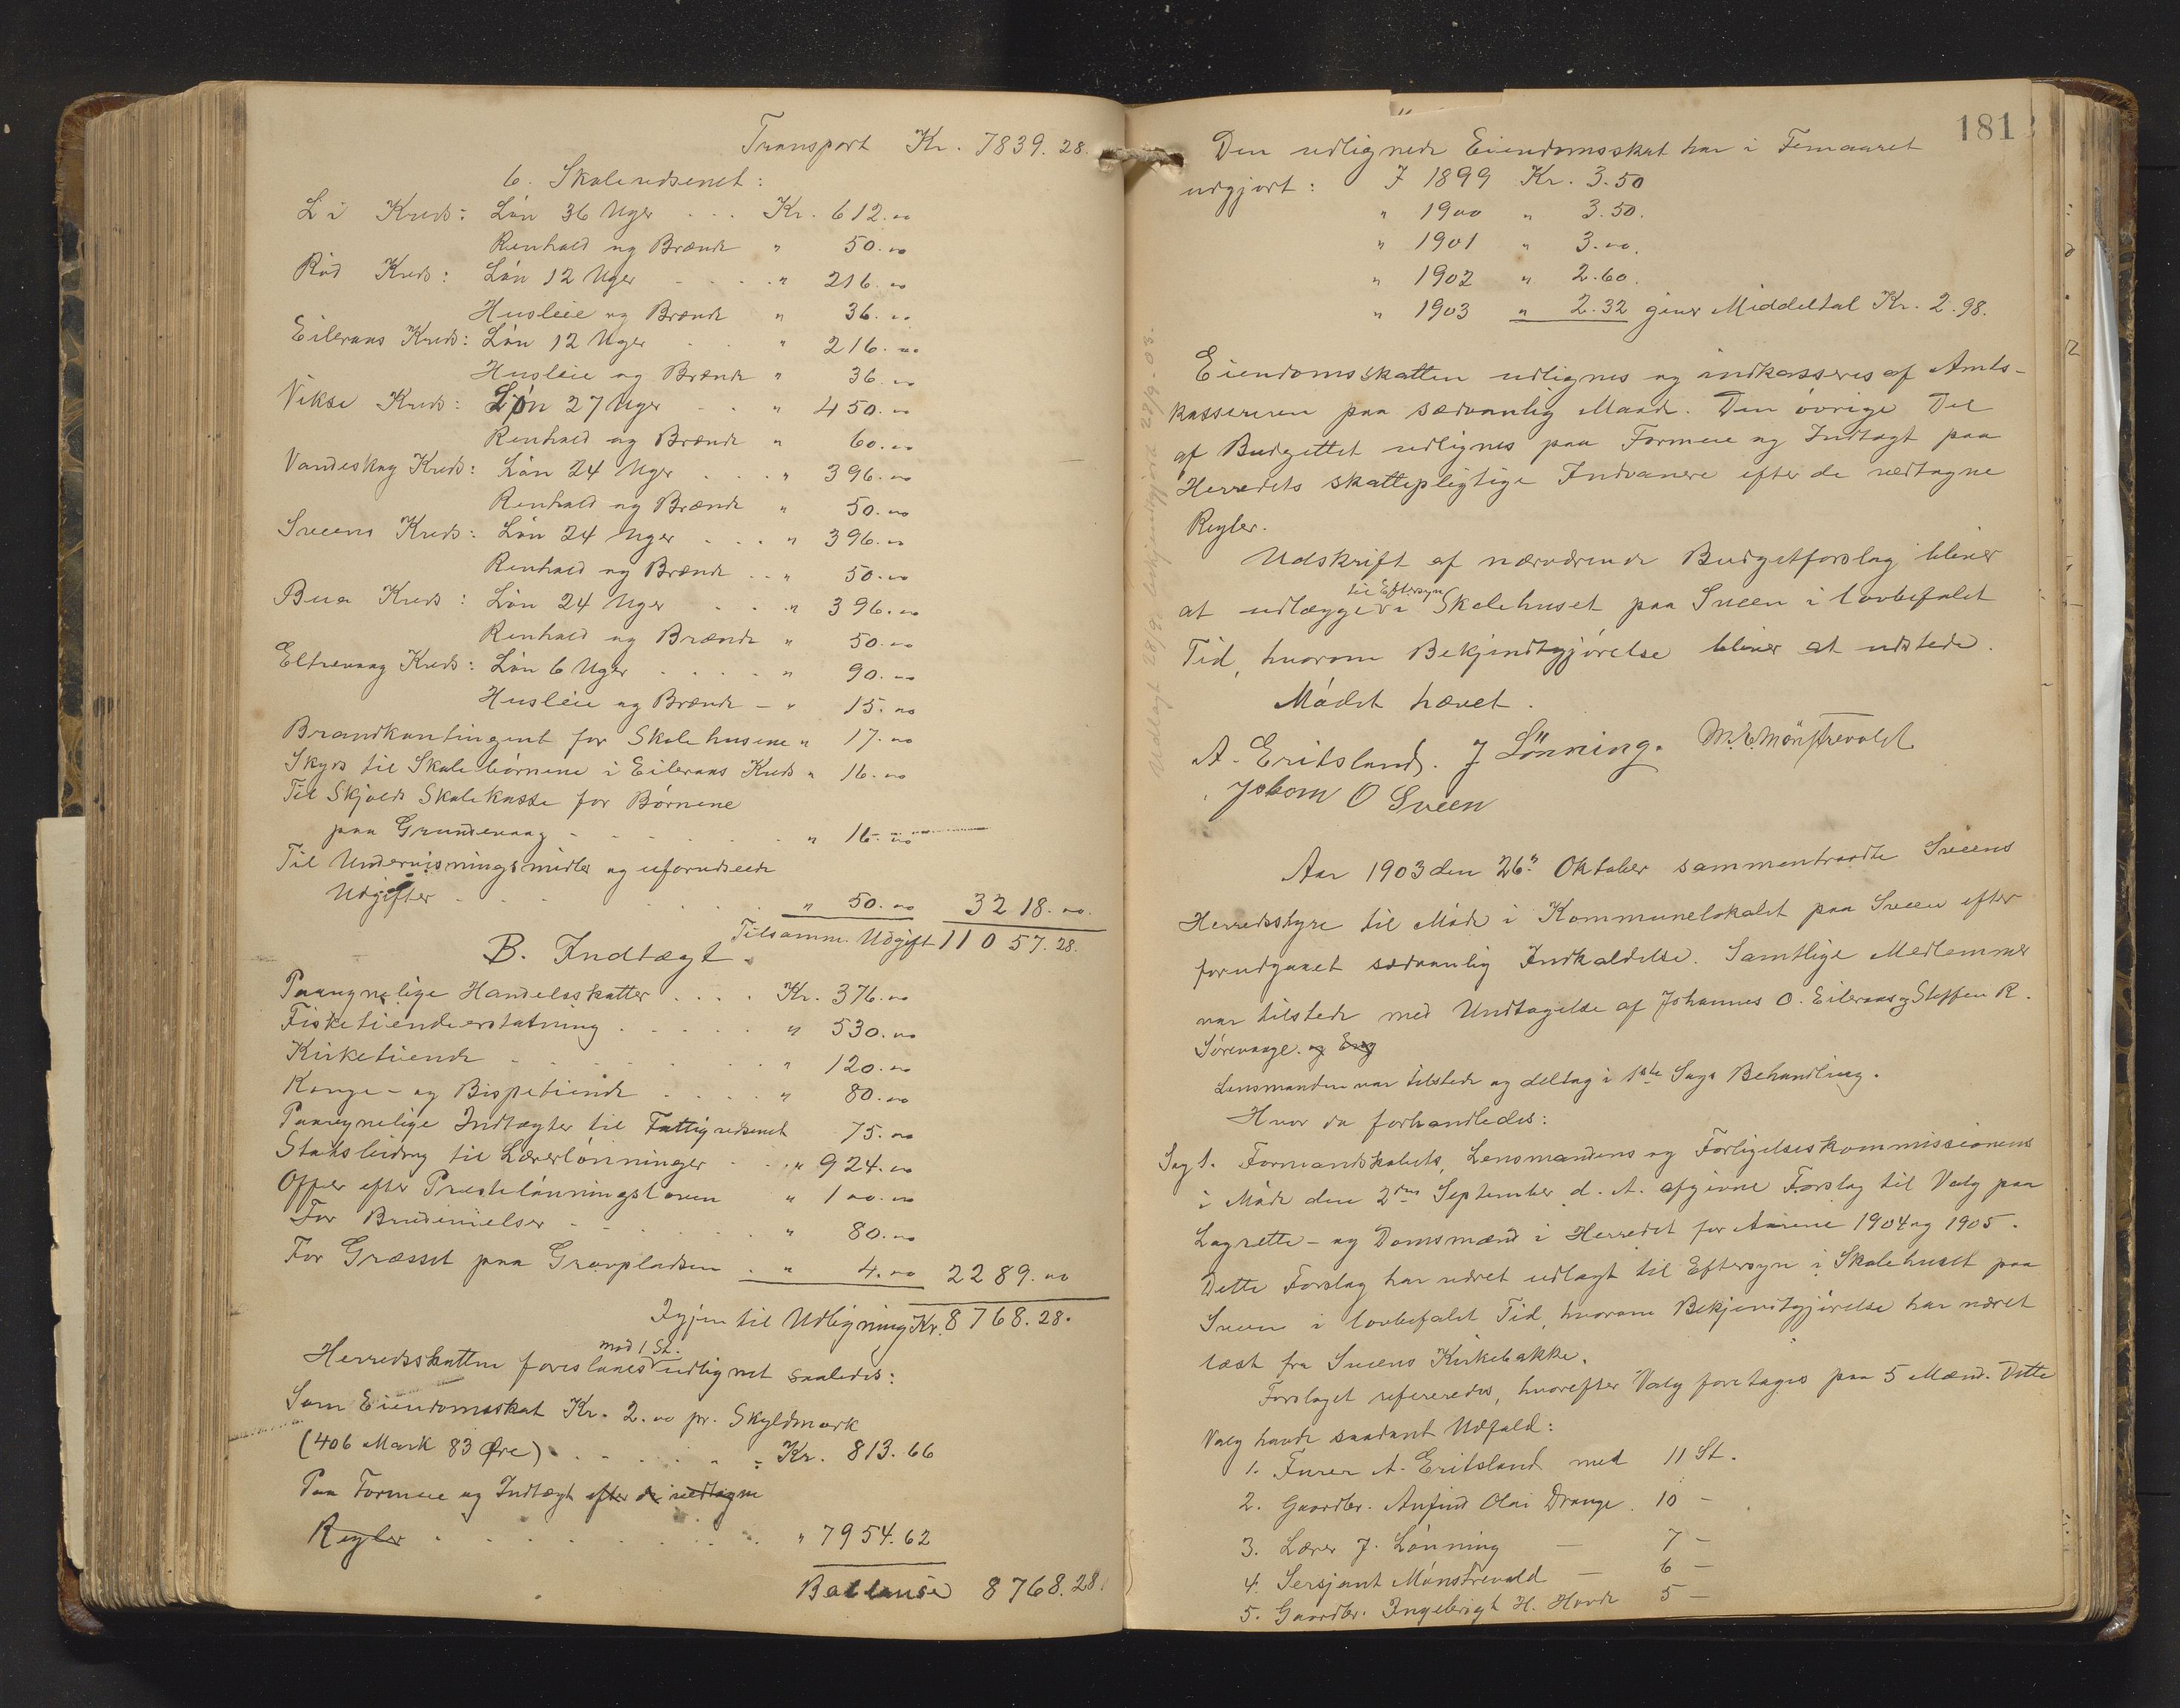 Transport Kr. 7839.28.
6. Skolevæsenet:
Li Kreds: Løn 36 Uger . . . Kr. 612.00
Renhold og Brænde " 50.00
Rød Kreds: Løn 12 Uger . . . . " 216.00
Husleie og Brænde " 36.00
Eileraas Kreds: Løn 12 Uger . . " 216.00
Husleie og Brænde " 36.00
Vikse Kreds: Løn 27 Uger . . " 450.00
Renhold og Brænde " 60.00
Vandeskog Kreds: Løn 24 Uger . . . " 396.00
Renhold og Brænde " 50.00
Sveens Kreds: Løn 24 Uger . . . " 396.00
Renhold og Brænde . . " 50.00
Bua Kreds: Løn 24 Uger . . . " 396.00
Renhold og Brænde " 50.00
Eltrevaag Kreds: Løn 6 Uger . . . . . " 90.00
Husleie og Brænde - " 15.00
Brandkontingent for Skolehusene " 17.00
Skyds til Skolebørnene i Eileraas Kreds " 16.00
Til Skjolds Skolekasse for Børnene
paa Grundevaag - - - - - . . " 16.00
Til Undervisningsmidler og uforudseede
Udgifter . . . . . . . " 50.00 3218.00.
Tilsamm. Udgift 11057.28.
B. Indtægt.
Paaregnelige Handelsskatter . . . . Kr. 376.00
Fisketiendeerstatning . . . . . " 530.00
Kirketiende . . . . . . " 120.00
Konge- og Bispetiende . . . . " 80.00
Paaregnelige Indtægter til Fattigvæsenet 75.00
Statsbidrag til Lærerlønninger . . " 924.00
Offer efter Prestelønningsloven " 100.00
For Brudevielser - - . . . . " 80.00
For Græsset paa Gravpladsen . " 4.00 2289.00
Igjen til Udligning Kr. 8768.28.
mod 1 St.
Herredsskatten foreslaaes udlignet saaledes:
Som Eiendomsskat Kr. 2.00 pr. Skyldmark
(406 Mark 83 Øre) . . . . . . = Kr. 813.66
Paa Formue og Indtægt efter de vedtagne
Regler . . . . . . . . . " 7954.62
Ballanse 8768.28.
181
Den udlignede Eiendomsskat har i Femaaret
udgjort: I 1899 Kr. 3.50
" 1900 " 3.50.
" 1901 " 3.00.
" 1902 " 2.60.
" 1903 " 2.32 giver Middeltal Kr. 2.98.
Udlagt 28/9. bekjendtgjort 28/9-03.
Eiendomsskatten udlignes og indkasseres af Amts-
kassereren paa sædvanlig Maade. Den øvrige Del
af Budgettet udlignes paa Formue og Indtægt paa
Herredets skattepligtige Indvaanere efter de vedtagne
Regler.
Udskrift af nærværende Budgetforslag bliver
til Eftersyn
at udlægge i Skolehuset paa Sveen i lovbefalet
Tid, hvorom Bekjendtgjørelse bliver at udstede.
Mødet hævet.
A. Eritsland. J Lönning. M. E. Mönstrevold
Jobom O Sveen
Aar 1903 den 26de Oktober sammentraadte Sveens
Herredsstyre til Møde i Kommunelokalet paa Sveen efter
forudgaaet sædvanlig Indkaldelse. Samtlige Medlemmer
var tilstede med Undtagelse af Johannes O. Eileraas og Steffen R.
Sørevaage. og Eng
Lensmanden var tilstede og deltog i 1ste Sags Behandling.
Hvor da forhandledes:
Sag 1. Formandskabets, Lensmandens og Forligelseskommissionens
i Møde den 2den September d. A. afgivne Forslag til Valg paa
Lagrette- og Domsmænd i Herredet for Aarene 1904 og 1905.
Dette Forslag har været udlagt til Eftersyn i Skolehuset paa
Sveen i lovbefalet Tid, hvorom Bekjendtgjørelse har været
læst fra Sveens Kirkebakke.
Forslaget refereredes, hvorefter Valg foretages paa 5 Mænd. Dette
Valg havde saadant Udfald:
1. Furer A. Eritsland med 11 St.
2. Gaardbr. Anfind Olai Drange. 10 -
3. Lærer J. Lønning - 7 -
4. Sersjant Mønstrevold - 6 -
5. Gaardbr. Ingebrigt H. Hovde 5 -